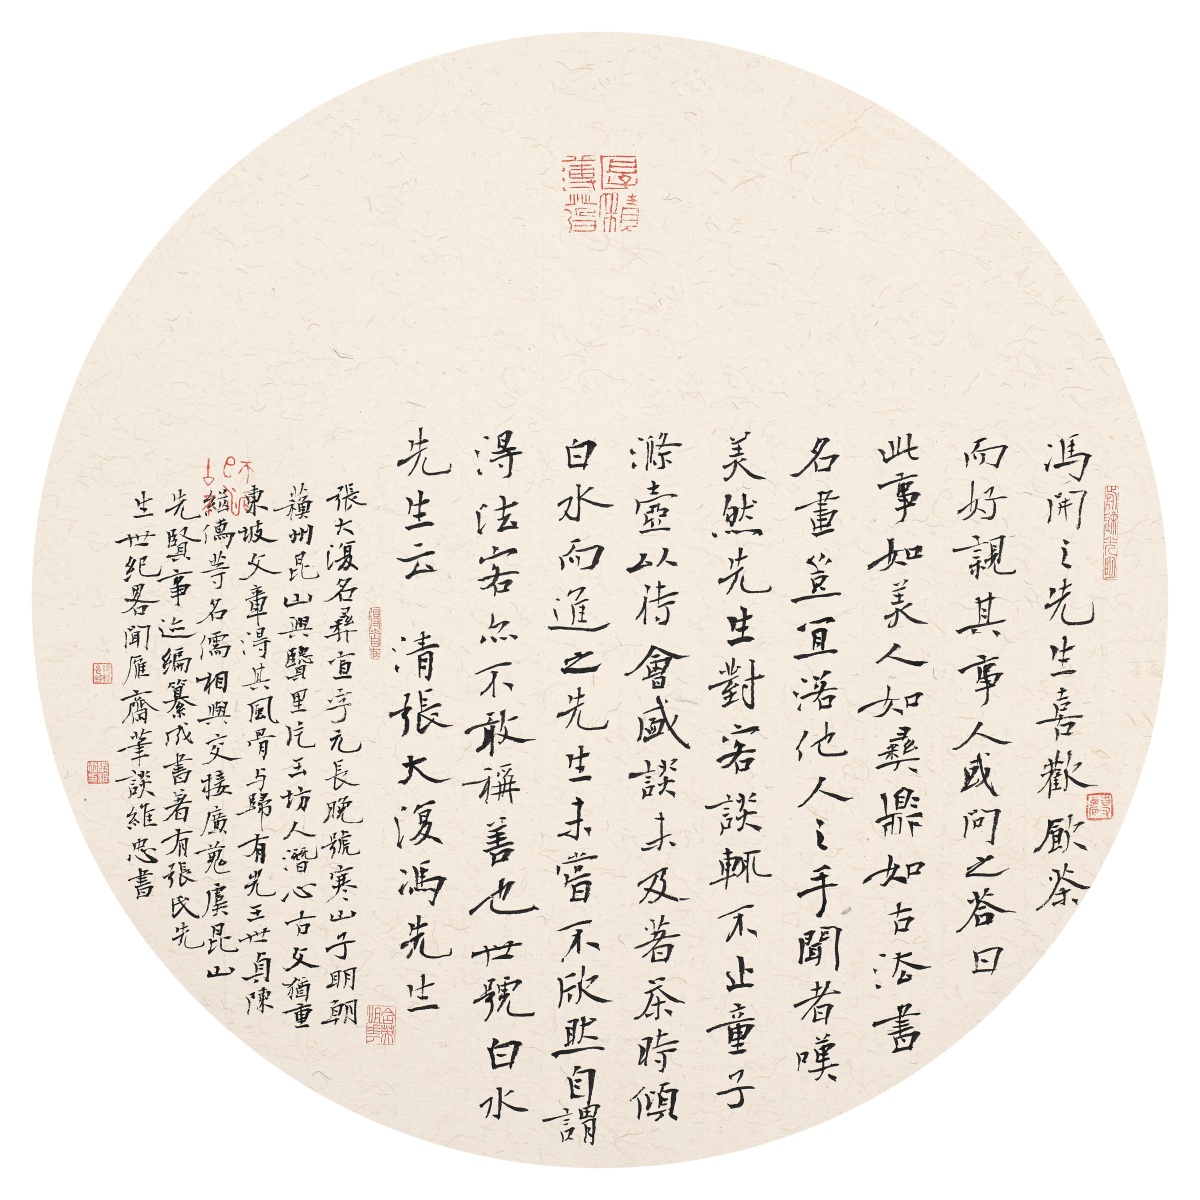 馮開之先生喜歡飲茶
而好親其事人或問之答曰
此事如美人如彝鼎如古法書
名畫豈宜落他人之手聞者嘆
美然先生對客談輒不止童子
滌壺以待會盛談未及著茶時傾
白水而進之先生未嘗不欣然自謂
得法客亦不敢稱善也世號白水
先生云 清張大復馮先生
張大復名彝宣字元長晚號寒山子明朝
蘇州昆山興賢里片玉坊人潛心古文猶重
東坡文章得其風骨与歸有光王世貞陳
繼儒等名儒相與交接廣蒐虞昆山
先賢事迹編纂成書著有張氏先
生世紀畧聞雁齋筆談維忠書
厚積薄發